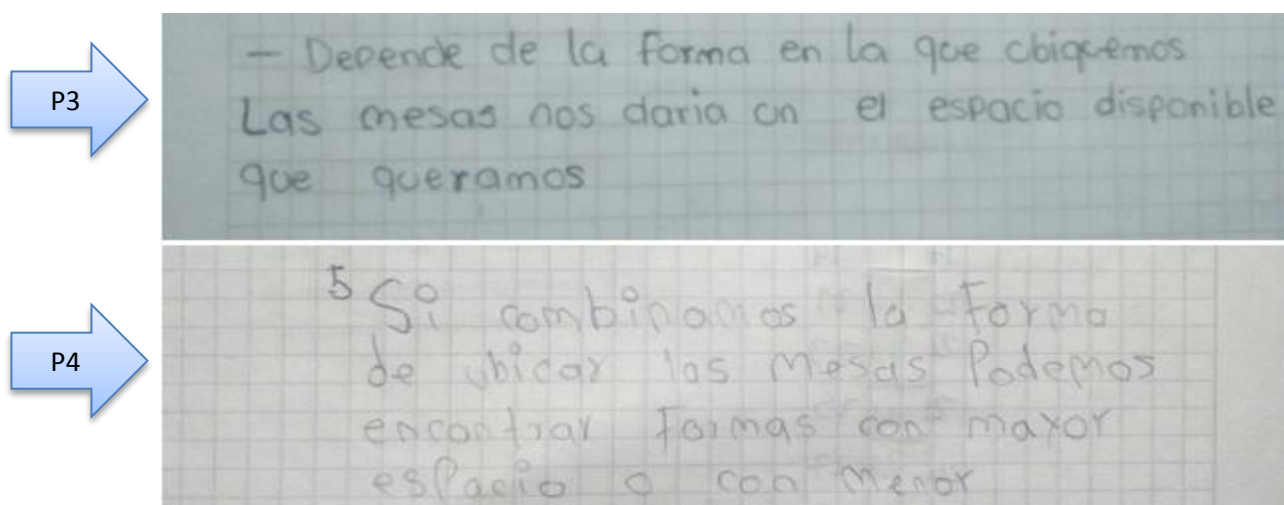 P3
- Depende de la forma en la que ubiquemos
Las mesas nos daria un el espacio disponible
que queramos
P4
5 Si combinamos la forma
de ubicar las mesas Podemos
encontrar formas con mayor
espacio o con menor